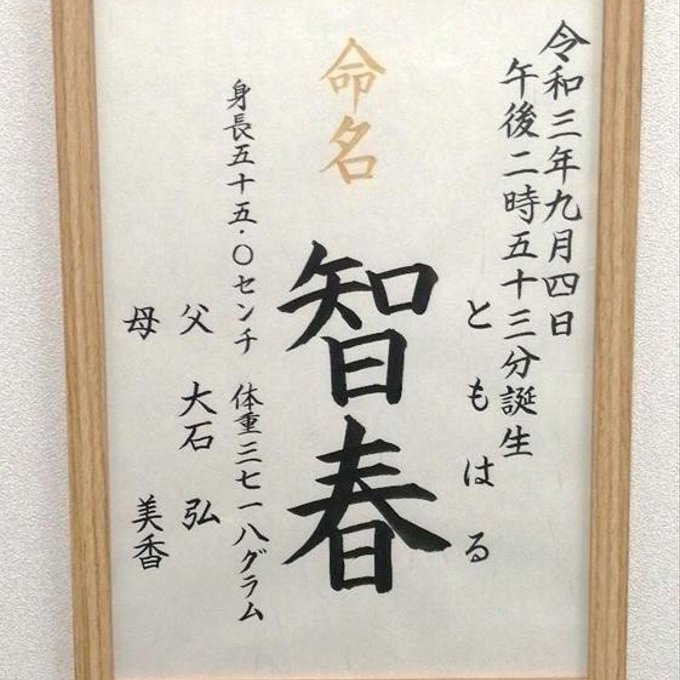 令和三年九月四日
午後二時五十三分誕生
ともはる
命名
智春
身長五十五・〇センチ 体重三七一八グラム
父 大石 弘
母 美香